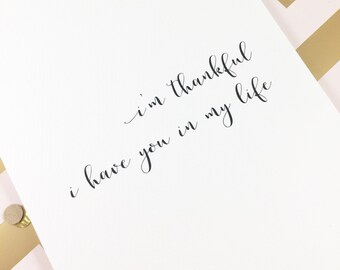 i'm thankful
i have you in my life